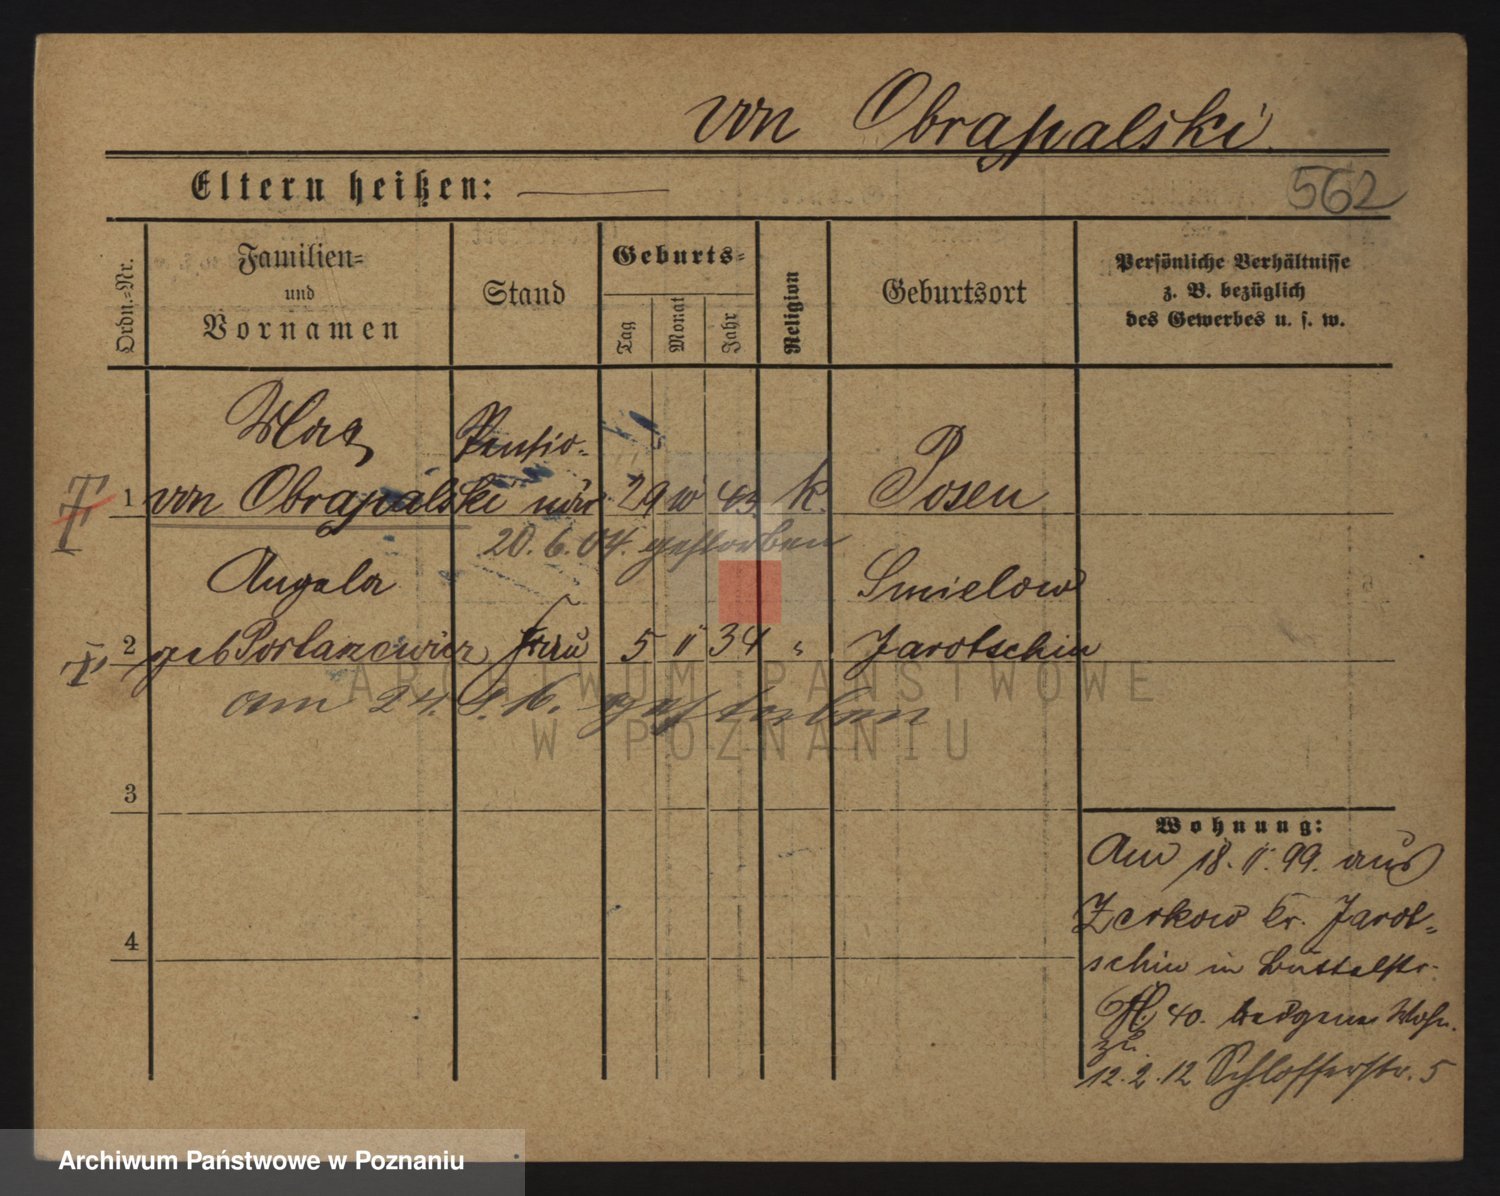 von Obrapalski
562
Eltern heißen: —
Ordn.=Nr.
Familien=
und
Vornamen
Stand
Geburts=
Tag
Monat
Jahr
Religion
Geburtsort
Persönliche Verhältnisse
z. B. bezüglich
des Gewerbes u. s. w.
1
Pensio-
von Obrapalski
när
29
43
k.
Posen
20.6.04. gestorben
2
Angela
geb
Frau
5
34
"
Smielow
Jarotschin
gestorben
ARCHIWUM PAŃSTWOWE
W POZNANIU
3
4
Wohnung:
Am 18. II. 99. aus
Zerkow Kr. Jarot-
schin in
40.
Wohn.
zu
12.2.12 Schlosserstr. 5
Archiwum Państwowe w Poznaniu